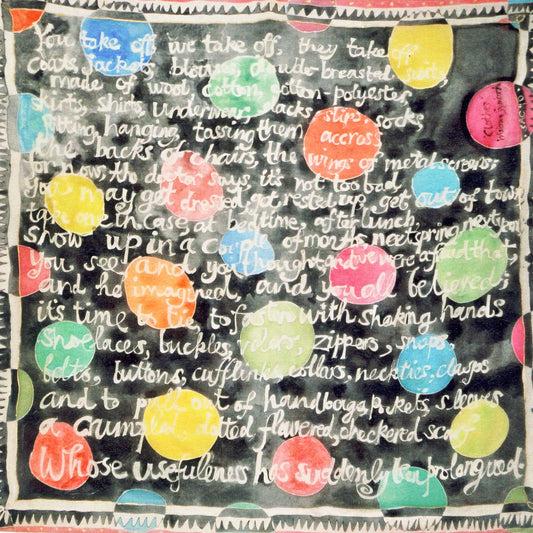 You take off, we take off, they take off
coats, jackets, blouses, double-breasted suits,
made of wool, cotton, cotton-polyester,
skirts, shirts, underwear, slacks slips, socks,
putting, hanging, tassing them accross
the backs of chairs, the wings of metal screens;
for now, the doctor says, it's not too bad
you may get dressed, get rested up, get out of town
take one in case, at bedtime, after lunch,
show up in a couple of months, next spring next year
You see, and you thought, and we were afraid that,
and he imagined, and you all believed;
it's time to tie, to fasten with shaking hands
shoelaces, buckles, velcro, zippers, snaps,
belts, buttons, cufflinks, collars, neckties, clasps
and to pull out of handbags, pockets, sleeves
a crumpled, dotted, flowered, checkered scarf
Whose usefulness has suddenly been prolongued.